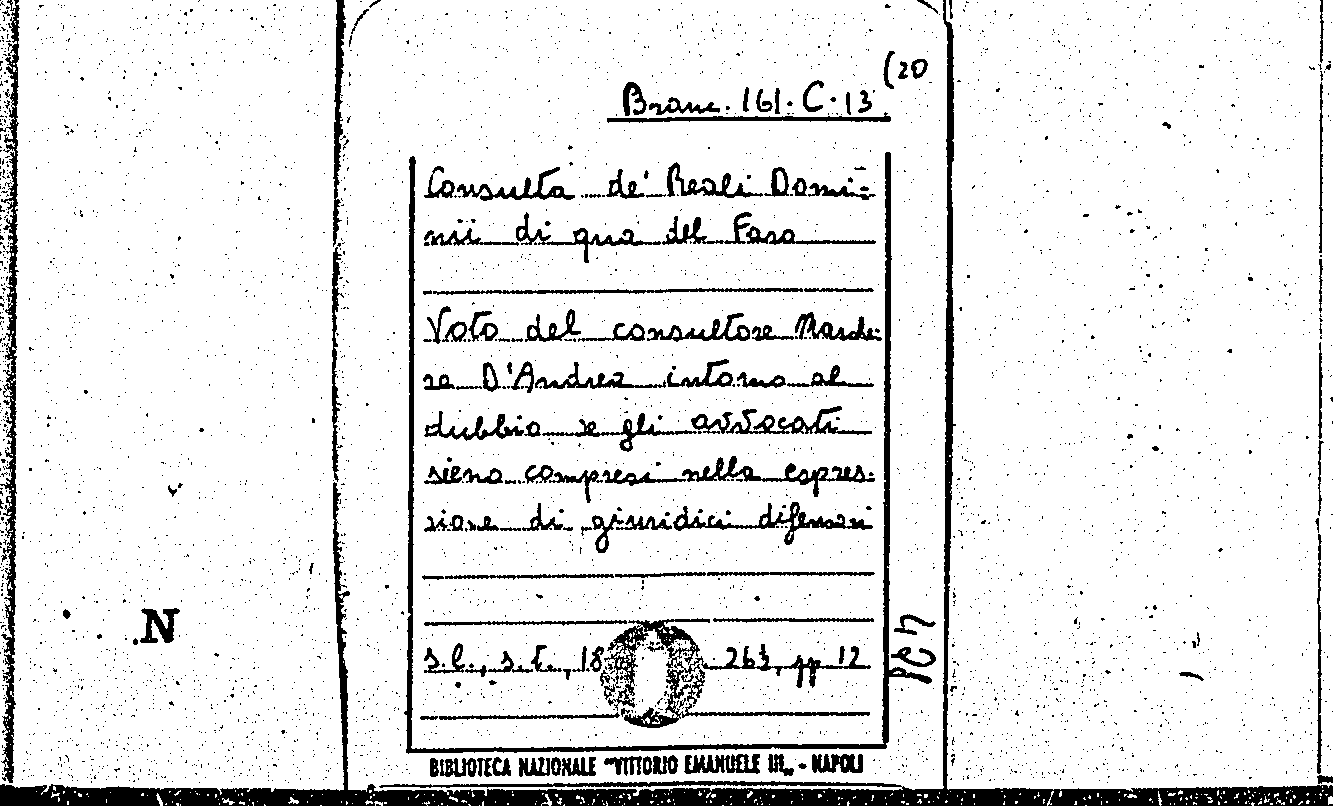 (20
Branc. 161. C. 13
Consulta de' Reali Domi=
nii di qua del Faro
Voto del consultore
D'Andrea intorno al
dubbio se gli avvocati
sieno compresi nella espres-
sione di giuridici difensori
s.l., s.t., 18 26½, pp 12
N
BIBLIOTECA NAZIONALE "VITTORIO EMANUELE III„ - NAPOLI